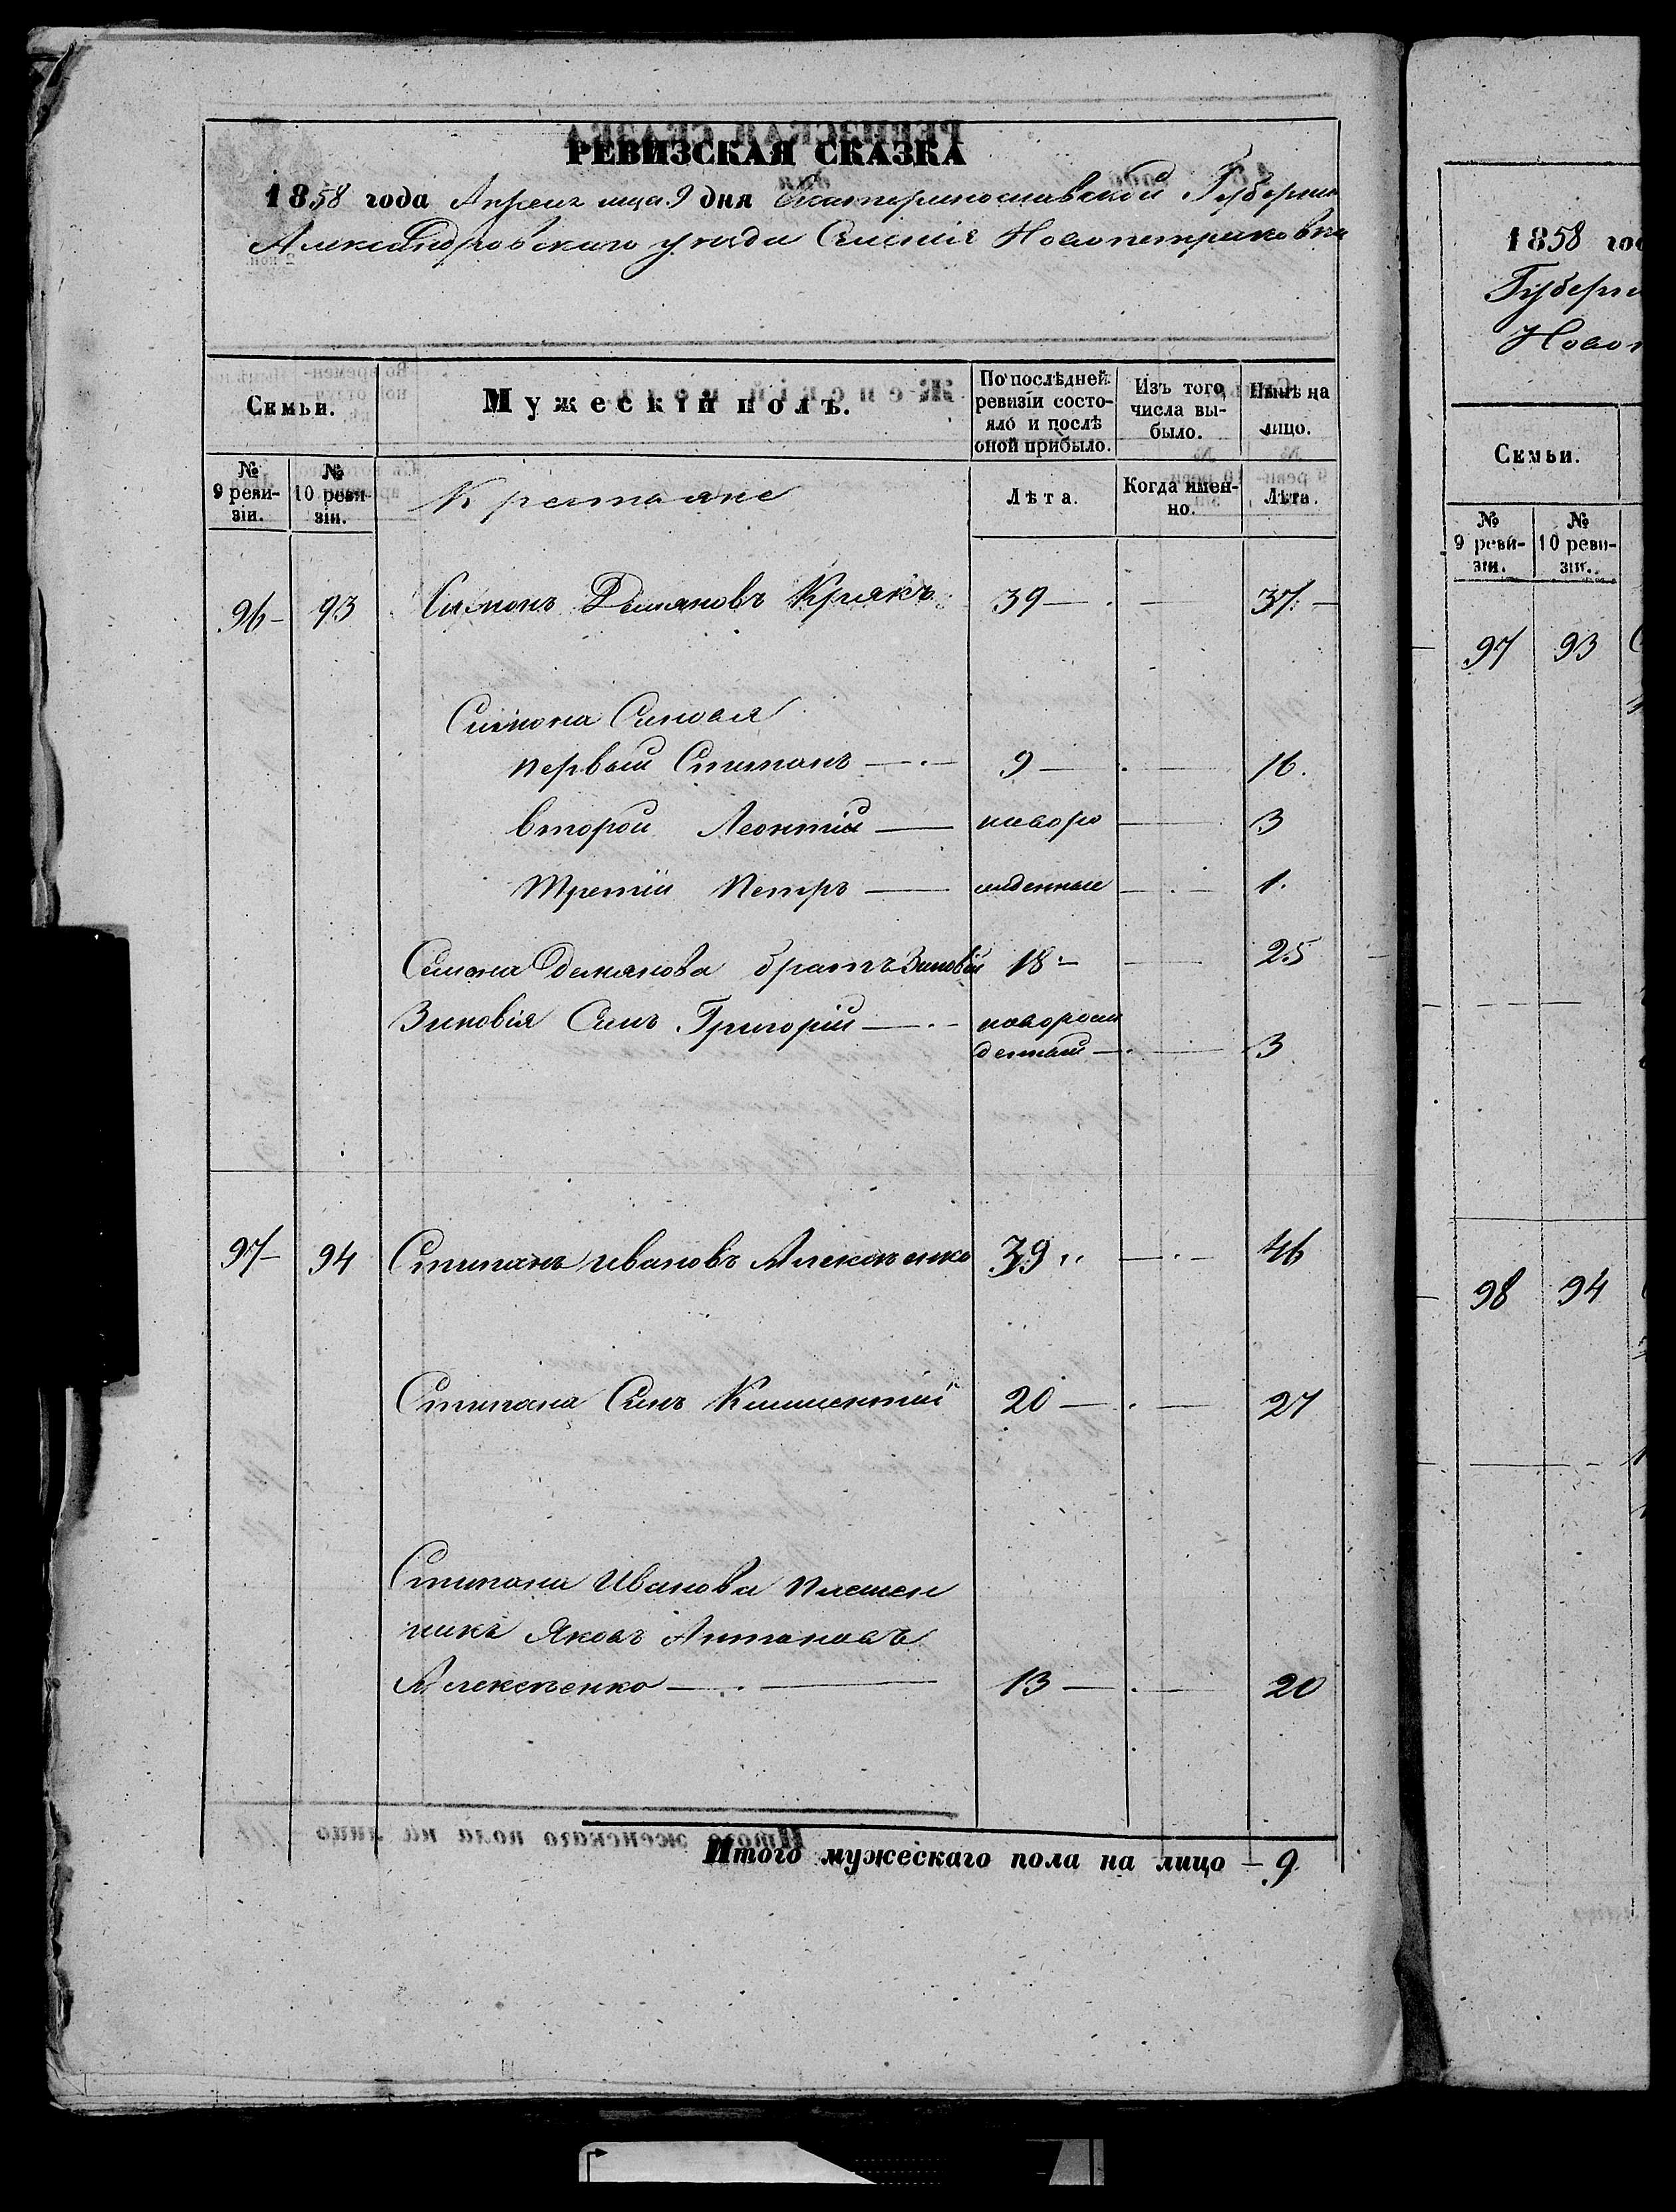 РЕВИЗСКАЯ СКАЗКА
1858 года Апреля мца 9 дня Екатеринославской Губернии
Александровского уезда Селения Новопетриковки
Семьи.
Мужескій полъ.
По послѣдней ревизіи состояло и послѣ оной прибыло.
Изъ того числа выбыло.
Нынѣ на лицо.
№ 9 ревизіи.
№ 10 ревизіи.
Крестьяне
Лѣта.
Когда именно.
Лѣта.
96 – 93 Симонъ Демяновъ 39 — . — 37 –
Симона Синовя
первый Стипанъ — . — 9 — . — 16.
второй Леонтій — новоро — 3
Третій Петръ — жденные — . — 1.
Симона Демянова братъ Зиновій 18 — 25
Зиновія Синъ Григорій — . — новорож
денный — . — 3
97 – 94 Стипанъ Ивановъ Алексѣенко 39 — . — 46
Стипана Синъ Климентий 20 — . — 27
Стипана Иванова племен
никъ Яковъ Антоновъ
Алексѣенко — . — 13 — . — 20
Итого мужескаго пола на лицо – 9
1858 го
Губерни
Новоп
Семьи.
№ 9 ревизіи.
№ 10 ревизіи.
97 93
98 94